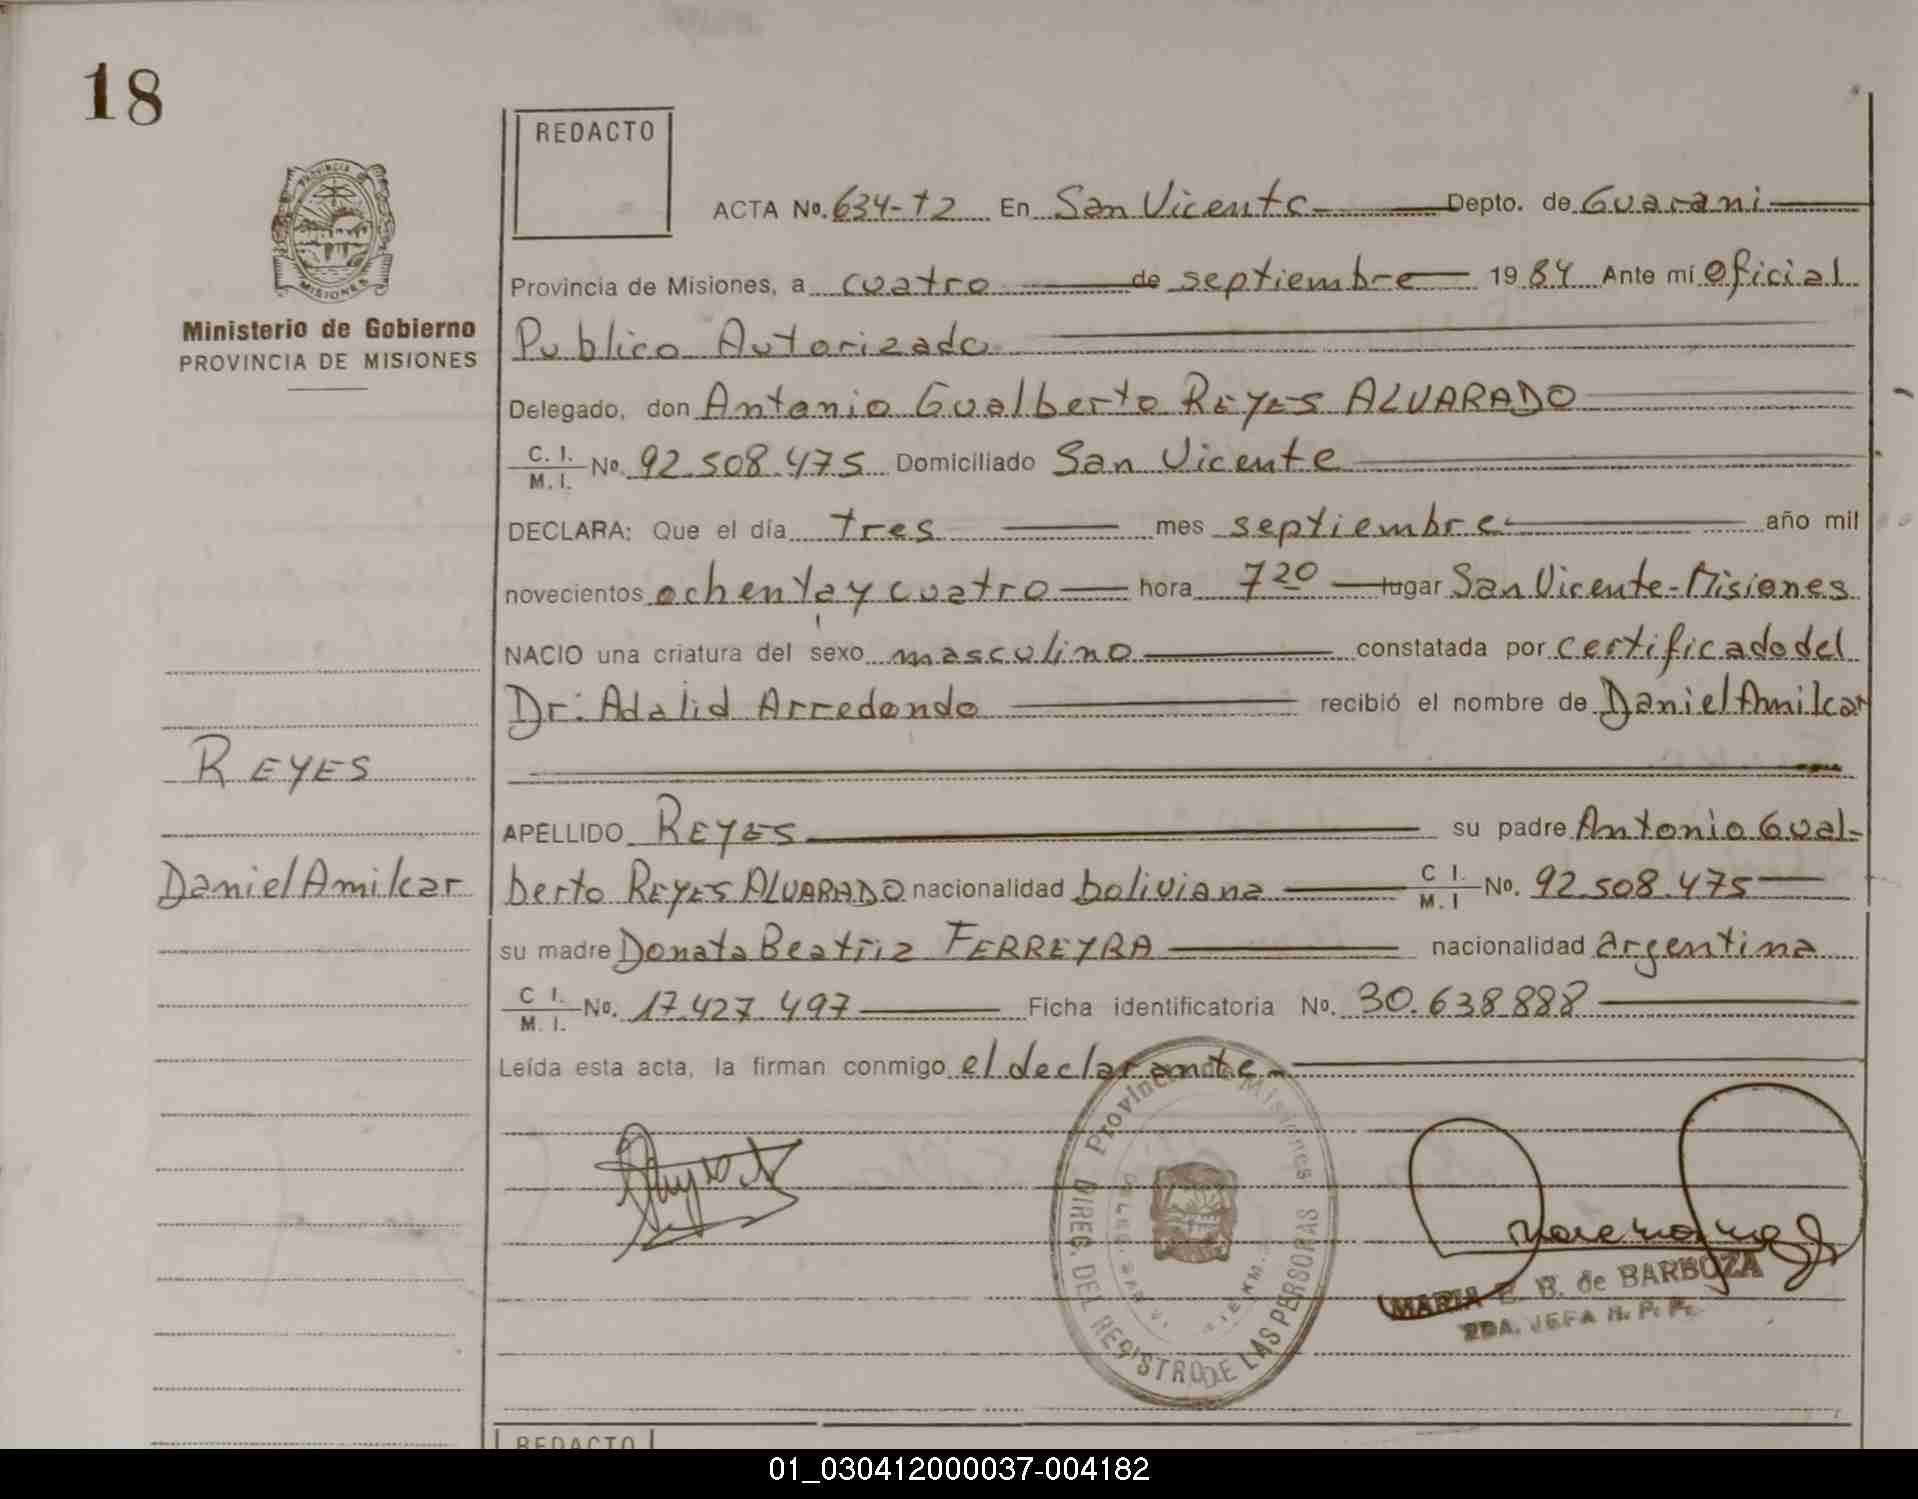 18
PROVINCIA DE
MISIONES
Ministerio de Gobierno
PROVINCIA DE MISIONES
REDACTO
ACTA No. 634-T2 En San Vicente Depto. de Guarani
Provincia de Misiones, a cuatro de septiembre 1984 Ante mí Oficial
Publico Autorizado
Delegado, don Antonio Gualberto REYES ALVARADO
C. I. / M. I. No. 92.508.475 Domiciliado San Vicente
DECLARA: Que el día tres mes septiembre año mil
novecientos ochenta y cuatro hora 7 20 lugar San Vicente-Misiones
NACIO una criatura del sexo masculino constatada por certificado del
Dr: Adalid Arredondo recibió el nombre de Daniel Amilcar
REYES
APELLIDO REYES su padre Antonio Gual-
Daniel Amilcar
berto REYES ALVARADO nacionalidad boliviana C I. / M. I No. 92.508.475
su madre Donata Beatriz FERREYRA nacionalidad argentina
C I. / M. I. No. 17.427.497 Ficha identificatoria No. 30.638.888
Leída esta acta, la firman conmigo el declarante
Provincia de Misiones
DIREC. DEL REGISTRO DE LAS PERSONAS
MARIA E. B. de BARBOZA
2DA. JEFA R. P. P.
REDACTO
01_030412000037-004182